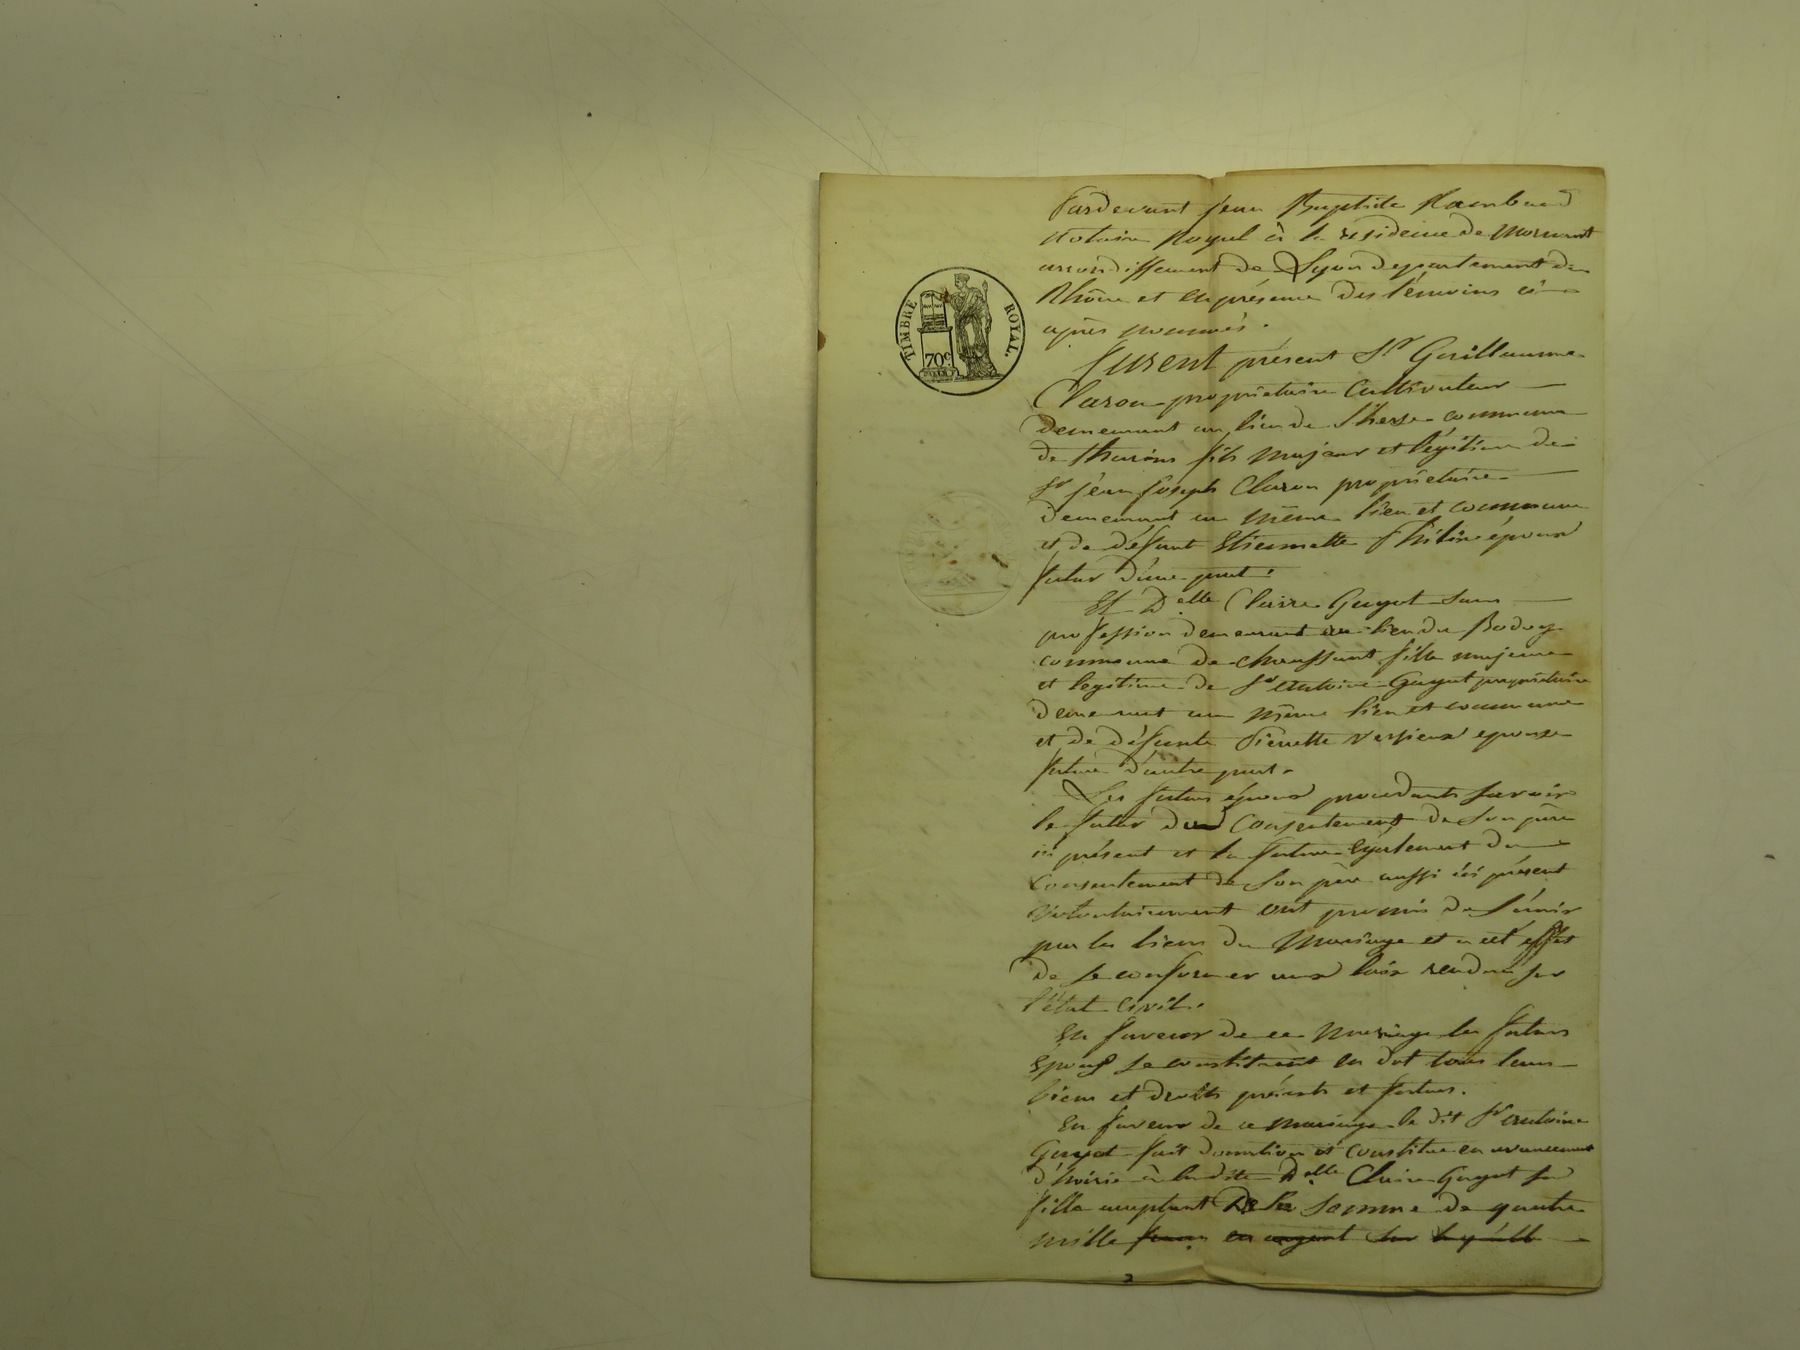 TIMBRE ROYAL.
70c.
Pardevant jean Baptiste Rambaud
Notaire Royal à la residence de Mornant
arrondissement de Lyon departement du
Rhône et en présence des témoins ci
après nommés.
furent présent Sr Guillaume
Claron propriétaire Cultivateur
demeurant au lieu de commune
de thurins fils majeur et légitime de
Sr jean joseph Claron propriétaire
demeurant au même lieu et commune
et de défunt Etiennette époux
futur d'une part.
Et Delle Claire Guyot sans
profession demeurant au lieu du
commune de chaussant fille majeure
et legitime de Sr Antoine Guyot propriétaire
demeurant au même lieu et commune
et de défunte Pierrette epouse
future d'autre part.
Les futurs époux procedants savoir
le futur du Consentement de Son père
ici présent et la future également du
Consentement de Son père aussi ici présent
Volontairement ont promis de S'unir
par les liens du Mariage et a cet effet
de se conformer aux loix rendues sur
l'état Civil.
En faveur de ce Mariage les futurs
époux se constituent en dot tous leurs
biens et droits présents et futurs.
En faveur de ce mariage le dit Sr antoine
Guyot fait donation et constitue en avancement
d'hoirie à la dite Delle Claire Guyot sa
fille acceptant De la somme de quatre
mille francs en argent
2